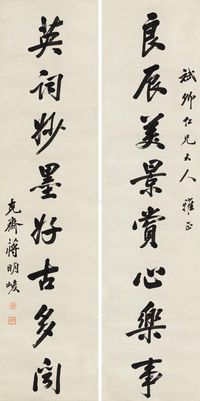 良辰美景賞心樂事
斌卿仁兄大人雅正
英詞妙墨好古多聞
克齋蔣明崚